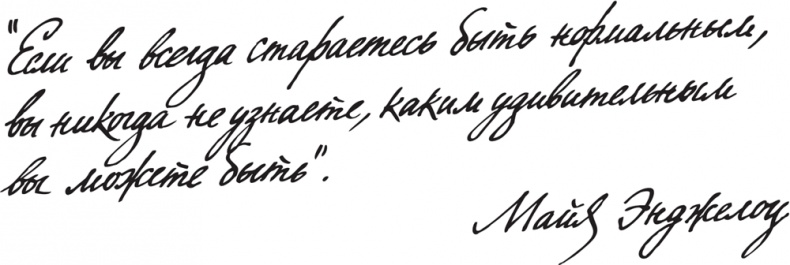 "Если вы всегда стараетесь быть нормальным,
вы никогда не узнаете, каким удивительным
вы можете быть".
Майя Энджелоу